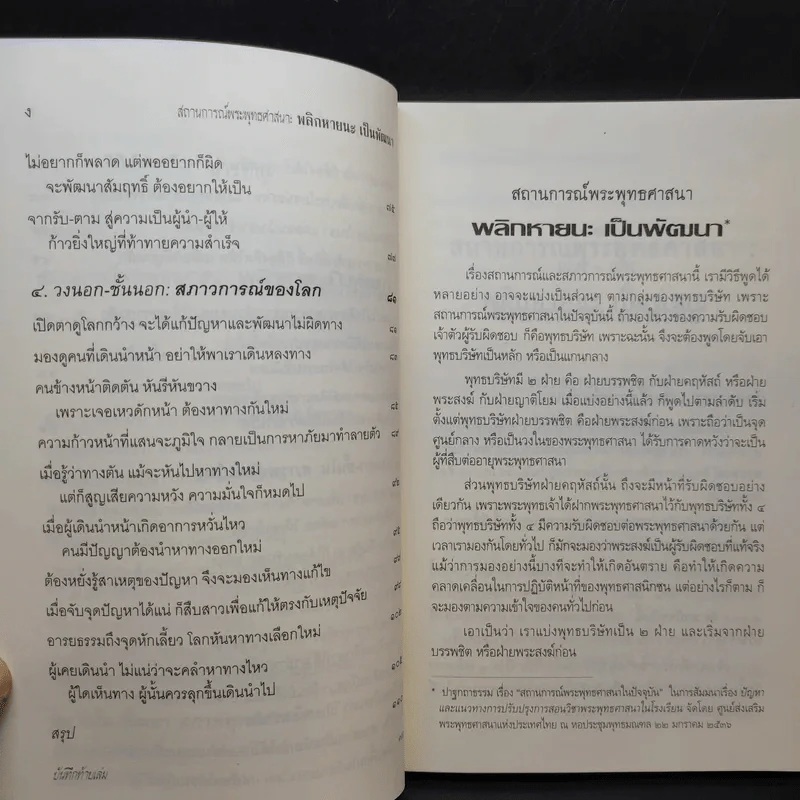 ง
สถานการณ์พระพุทธศาสนา: พลิกหายนะ เป็นพัฒนา
ไม่อยากก็พลาด แต่พออยากก็ผิด
จะพัฒนาสัมฤทธิ์ ต้องอยากให้เป็น
๗๕
จากรับ-ตาม สู่ความเป็นผู้นำ-ผู้ให้
ก้าวยิ่งใหญ่ที่ท้าทายความสำเร็จ
๗๘
๔. วงนอก-ชั้นนอก: สภาวการณ์ของโลก ๘๑
เปิดตาดูโลกกว้าง จะได้แก้ปัญหาและพัฒนาไม่ผิดทาง ๘๑
มองดูคนที่เดินนำหน้า อย่าให้พาเราเดินหลงทาง
คนข้างหน้าติดตัน หันรีหันขวาง
เพราะเจอเหวดักหน้า ต้องหาทางกันใหม่ ๘๕
ความก้าวหน้าที่แสนจะภูมิใจ กลายเป็นการหาภัยมาทำลายตัว
เมื่อรู้ว่าทางตัน แม้จะหันไปหาทางใหม่
แต่ก็สูญเสียความหวัง ความมั่นใจก็หมดไป
เมื่อผู้เดินนำหน้าเกิดอาการหวั่นไหว
คนมีปัญญาต้องนำหาทางออกใหม่
ต้องหยั่งรู้สาเหตุของปัญหา จึงจะมองเห็นทางแก้ไข
เมื่อจับจุดปัญหาได้แน่ ก็สืบสาวเพื่อแก้ให้ตรงกับเหตุปัจจัย
อารยธรรมถึงจุดหักเลี้ยว โลกหันหาทางเลือกใหม่
ผู้เคยเดินนำ ไม่แน่ว่าจะคลำหาทางไหว
ผู้ใดเห็นทาง ผู้นั้นควรลุกขึ้นเดินนำไป
สรุป
บันทึกท้ายเล่ม
สถานการณ์พระพุทธศาสนา
พลิกหายนะ เป็นพัฒนา*
เรื่องสถานการณ์และสภาวการณ์พระพุทธศาสนานี้ เรามีวิธีพูดได้
หลายอย่าง อาจจะแบ่งเป็นส่วนๆ ตามกลุ่มของพุทธบริษัท เพราะ
สถานการณ์พระพุทธศาสนาในปัจจุบันนี้ ถ้ามองในวงของความรับผิดชอบ
เจ้าตัวผู้รับผิดชอบ ก็คือพุทธบริษัท เพราะฉะนั้น จึงจะต้องพูดโดยจับเอา
พุทธบริษัทเป็นหลัก หรือเป็นแกนกลาง
พุทธบริษัทมี ๒ ฝ่าย คือ ฝ่ายบรรพชิต กับฝ่ายคฤหัสถ์ หรือฝ่าย
พระสงฆ์ กับฝ่ายญาติโยม เมื่อแบ่งอย่างนี้แล้ว ก็พูดไปตามลำดับ เริ่ม
ตั้งแต่พุทธบริษัทฝ่ายบรรพชิต คือฝ่ายพระสงฆ์ก่อน เพราะถือว่าเป็นจุด
ศูนย์กลาง หรือเป็นวงในของพระพุทธศาสนา ได้รับการคาดหวังว่าจะเป็น
ผู้ที่สืบต่ออายุพระพุทธศาสนา
ส่วนพุทธบริษัทฝ่ายคฤหัสถ์นั้น ถึงจะมีหน้าที่รับผิดชอบอย่าง
เดียวกัน เพราะพระพุทธเจ้าได้ฝากพระพุทธศาสนาไว้กับพุทธบริษัททั้ง ๔
ถือว่าพุทธบริษัททั้ง ๔ มีความรับผิดชอบต่อพระพุทธศาสนาด้วยกัน แต่
เวลาเรามองกันโดยทั่วไป ก็มักจะมองว่าพระสงฆ์เป็นผู้รับผิดชอบที่แท้จริง
แม้ว่าการมองอย่างนี้บางทีจะทำให้เกิดอันตราย คือทำให้เกิดความ
คลาดเคลื่อนในการปฏิบัติหน้าที่ของพุทธศาสนิกชน แต่อย่างไรก็ตาม ก็
จะมองตามความเข้าใจของคนทั่วไปก่อน
เอาเป็นว่า เราแบ่งพุทธบริษัทเป็น ๒ ฝ่าย และเริ่มจากฝ่าย
บรรพชิต หรือฝ่ายพระสงฆ์ก่อน
* ปาฐกถาธรรม เรื่อง "สถานการณ์พระพุทธศาสนาในปัจจุบัน" ในการสัมมนาเรื่อง ปัญหา
และแนวทางการปรับปรุงการสอนวิชาพระพุทธศาสนาในโรงเรียน จัดโดย ศูนย์ส่งเสริม
พระพุทธศาสนาแห่งประเทศไทย ณ หอประชุมพุทธมณฑล ๒๒ มกราคม ๒๕๓๖